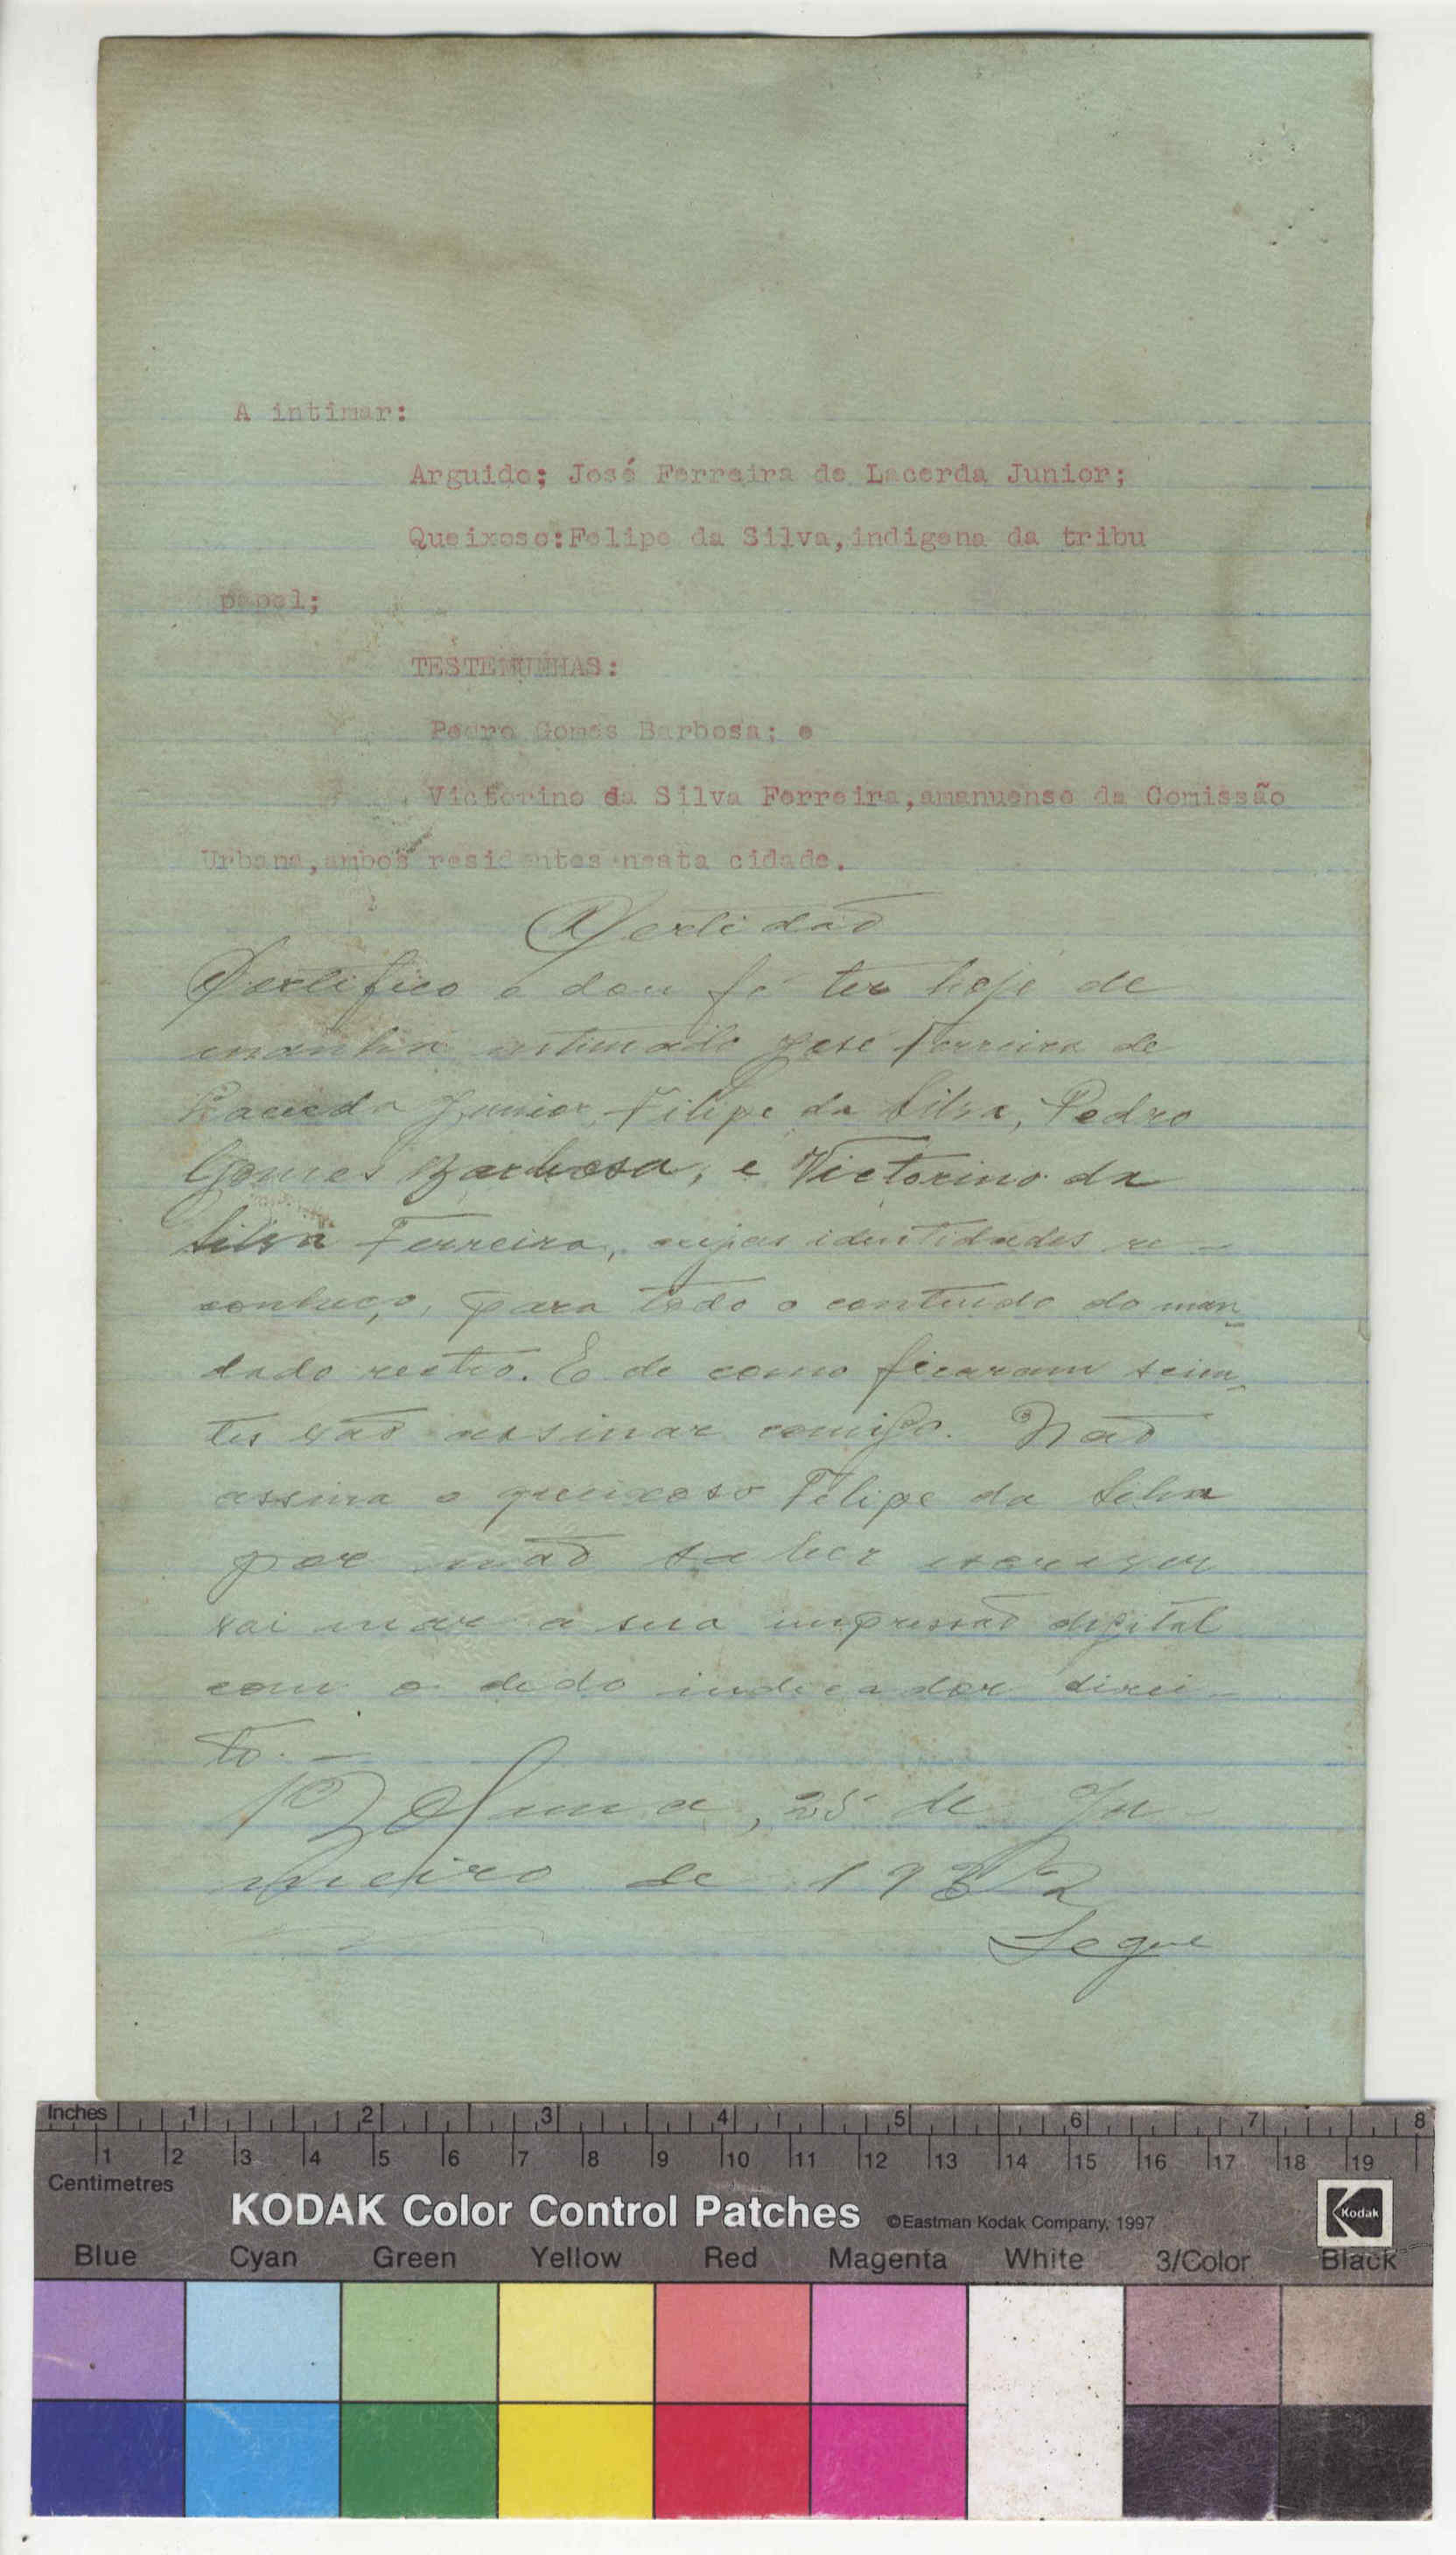 A intimar:
Arguido; José Ferreira de Lacerda Junior;
Queixoso:Felipe da Silva,indigena da tribu
papel;
TESTEMUNHAS:
Pedro Gomes Barbosa; e
Victorino da Silva Ferreira,amanuense da Comissão
Urbana,ambos residentes nesta cidade.
Certidão
Certifico e dou fé ter hoje de
manhã intimado José Ferreira de
Lacerda Junior, Filipe da Silva, Pedro
Gomes Barbosa, e Victorino da
Silva Ferreira, cujas identidades re-
conheço, para todo o conteúdo do man-
dado retro. E de como ficaram scien-
tes vão assinar comigo. Não
assina o queixoso Felipe da Silva
por não saber escrever
vai a sua impressão digital
com o dedo indicador direi-
to.-
Bolama, 25 de
de 1932
Segue
Inches 1 2 3 4 5 6 7 8
1 2 3 4 5 6 7 8 9 10 11 12 13 14 15 16 17 18 19
Centimetres
KODAK Color Control Patches ©Eastman Kodak Company, 1997 Kodak
Blue Cyan Green Yellow Red Magenta White 3/Color Black